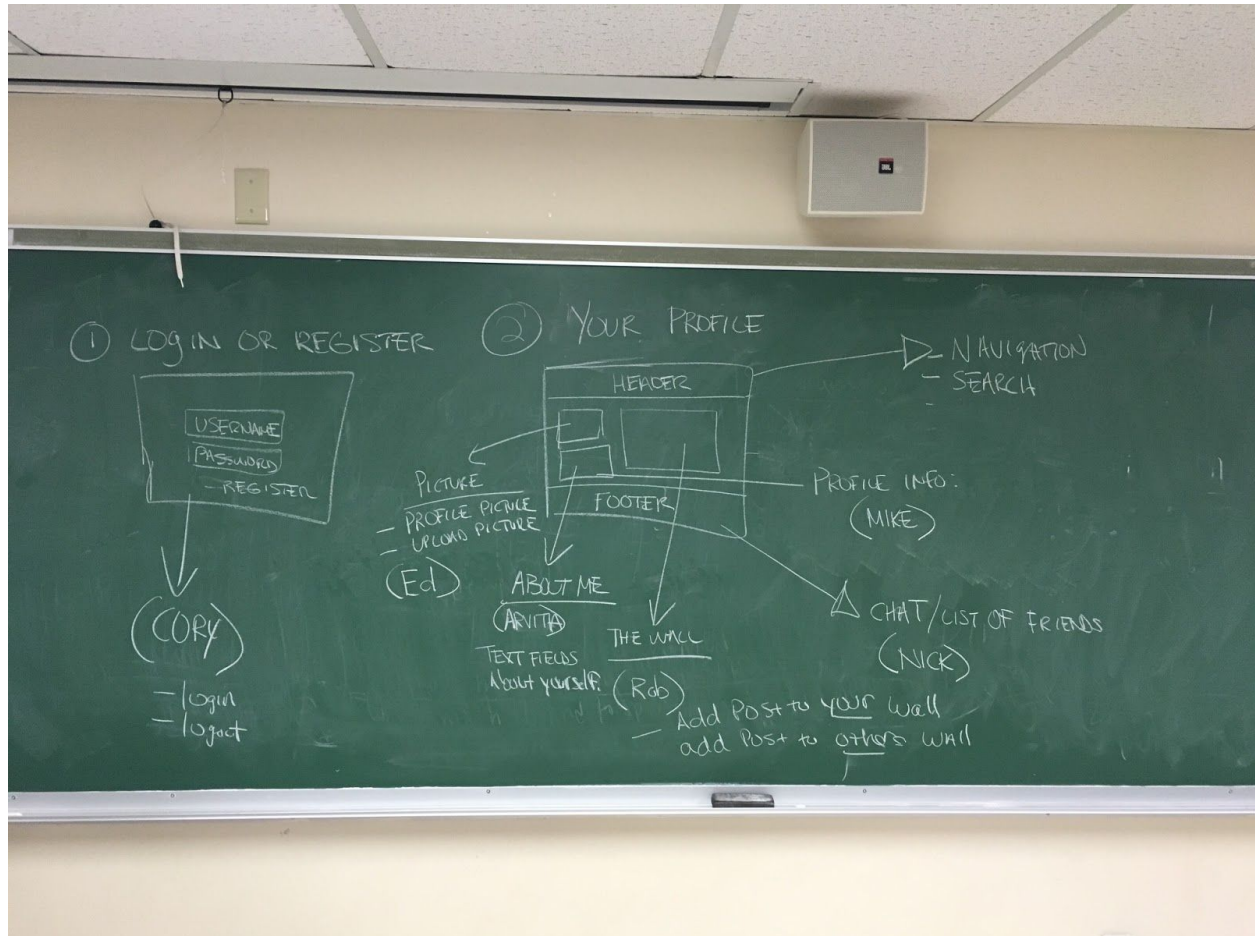 JBL
① LOGIN OR REGISTER
USERNAME
PASSWORD
- REGISTER
(CORY)
- login
- logout
② YOUR PROFILE
HEADER
FOOTER
- NAVIGATION
- SEARCH
PICTURE
- PROFILE PICTURE
- UPLOAD PICTURE
(Ed)
ABOUT ME
(ARVITA)
TEXT FIELDS
About yourself.
THE WALL
(Rob)
- Add Post to your wall
add Post to others wall
PROFILE INFO:
(MIKE)
CHAT/LIST OF FRIENDS
(NICK)